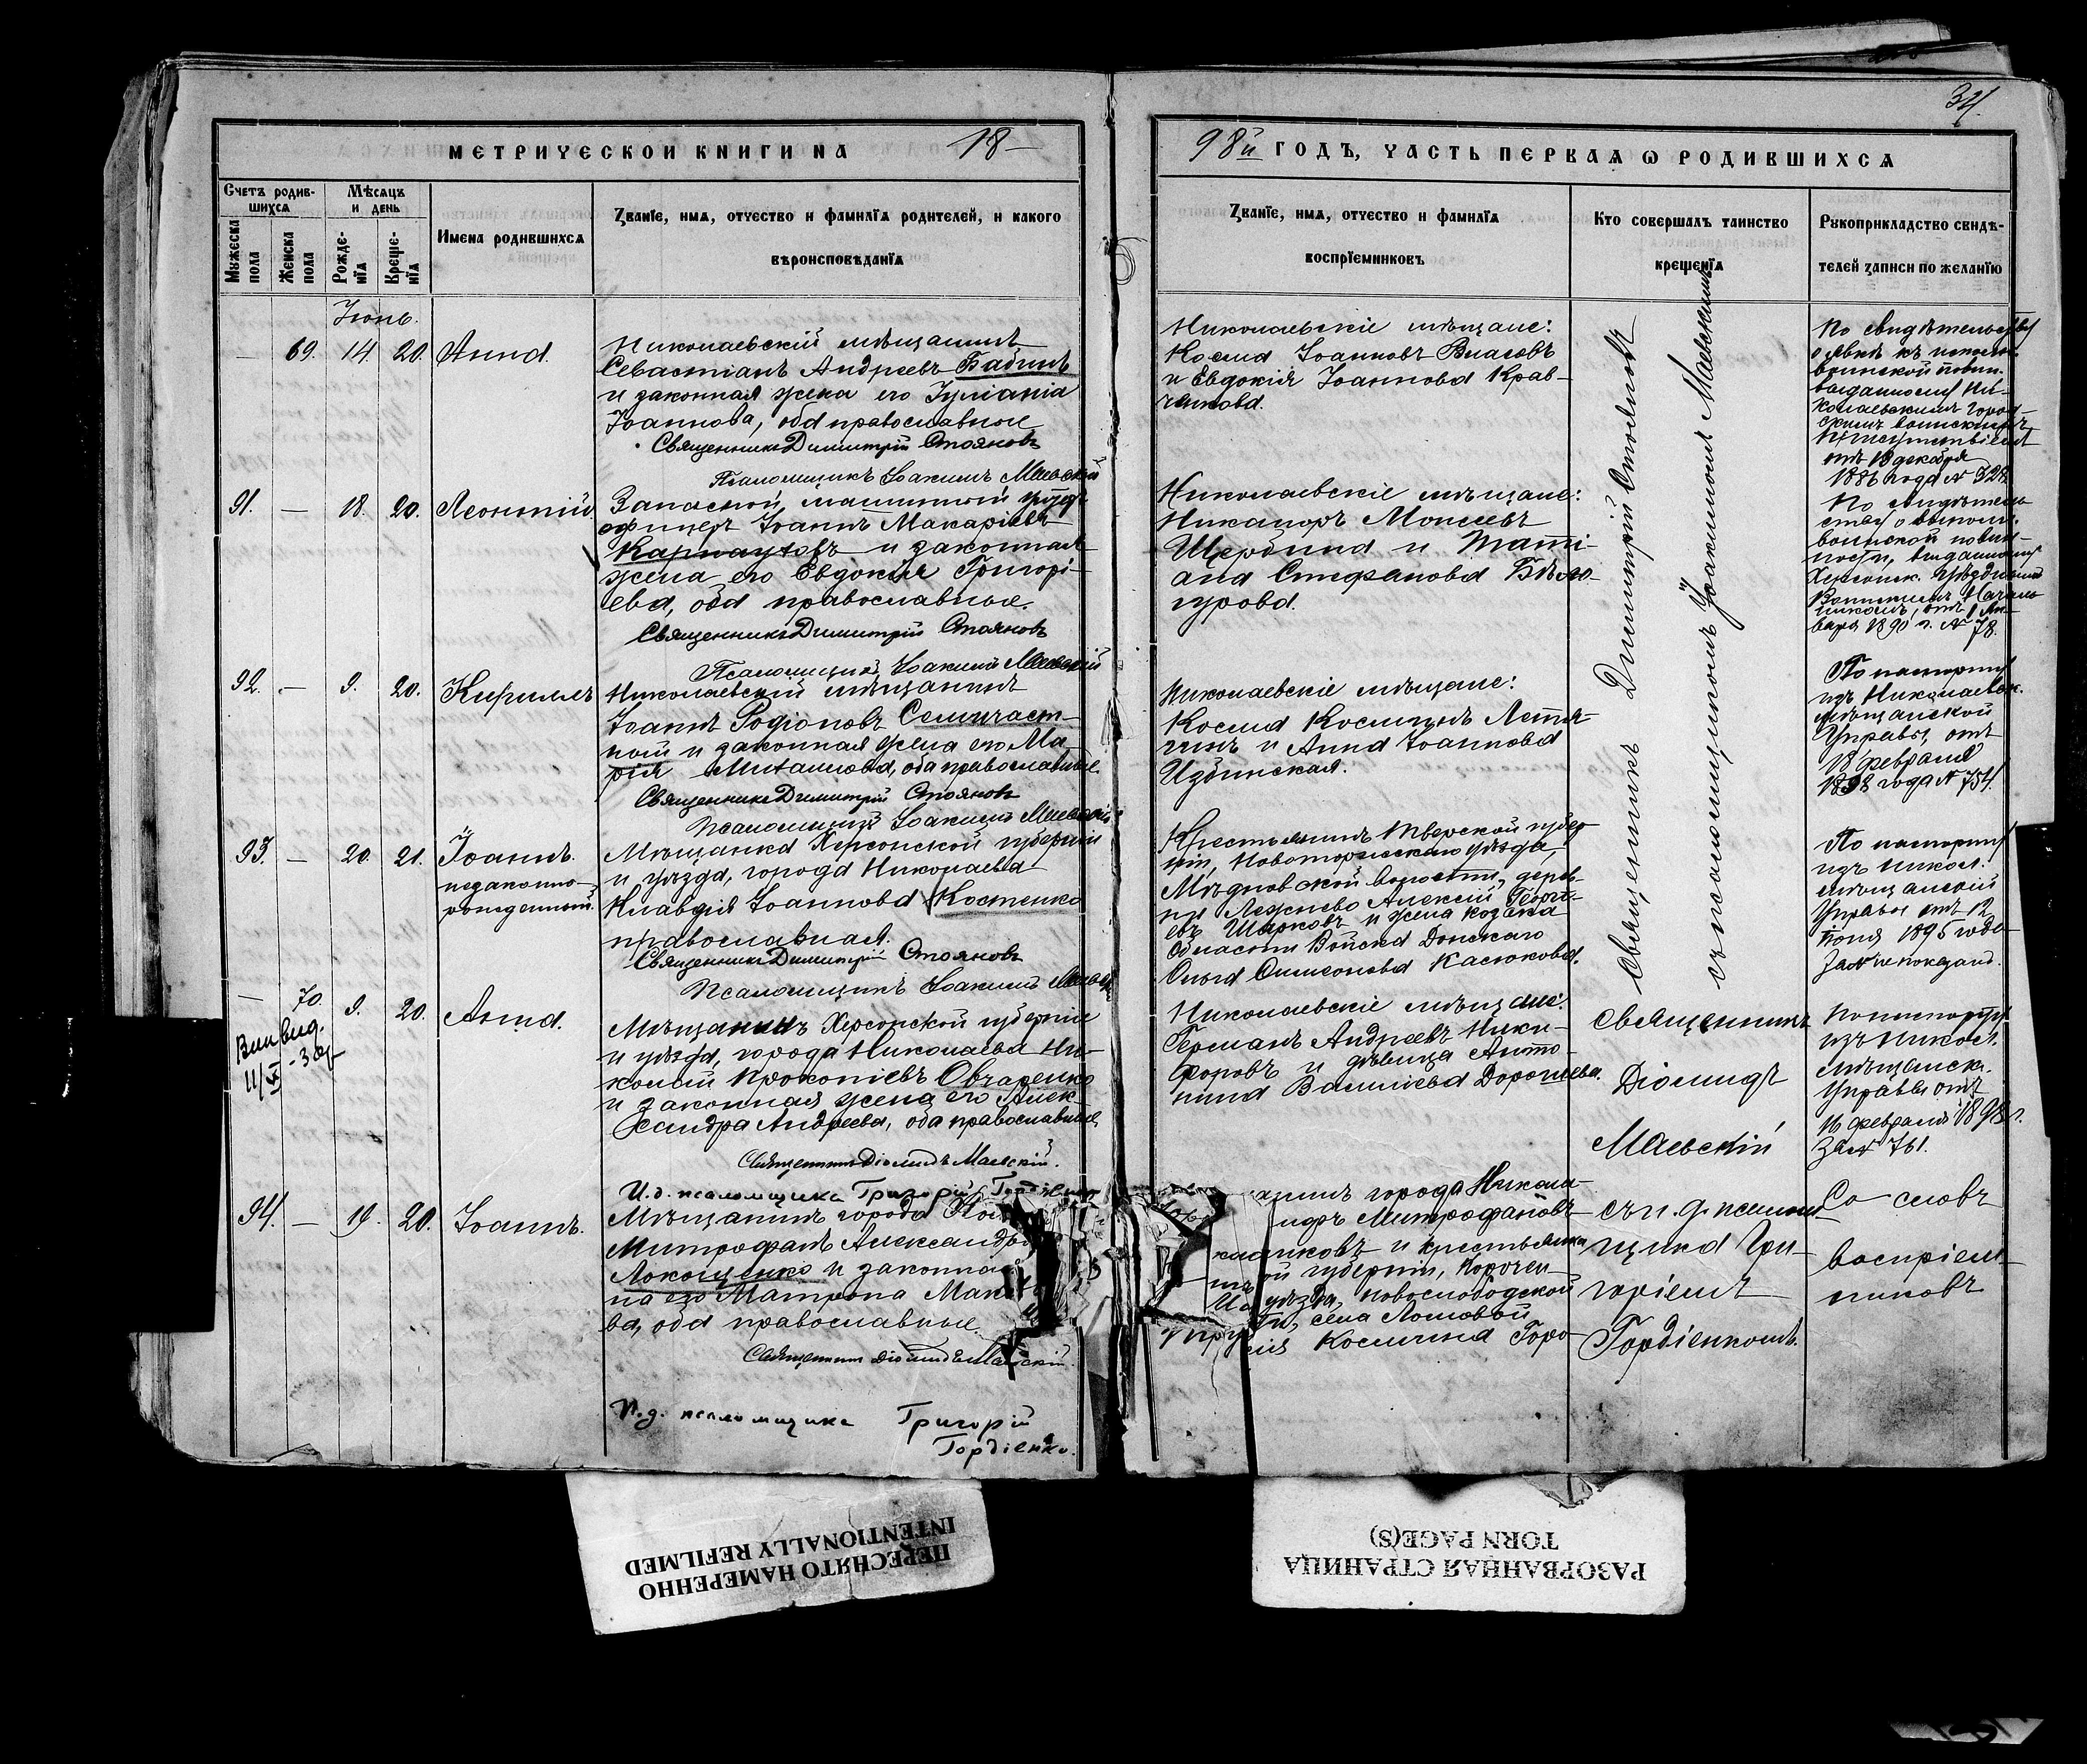 34
МЕТРИЧЕСКОЙ КНИГИ НА 18
98й ГОДЪ, ЧАСТЬ ПЕРВАЯ Ѡ РОДИВШИХСЯ
Счетъ родив-
шихся
Мѣсяцъ
и день
Мужеска
пола
Женска
пола
Рожде-
нія
Креще-
нія
Имена родившихся
Званїе, имя, отчество и фамилїя родителей, и какого
вѣроисповѣданїя
Званїе, имя, отчество и фамилїя
воспрїемниковъ
Кто совершалъ таинство
крещенїя
Рукоприкладство свидѣ-
телей записи по желанїю
Іюнь.
— 69. 14 20. Анна.
Николаевскій мѣщанинъ
Севастіанъ Андреевъ Бабинъ
и законная жена его Іуліанія
Іоаннова, оба православные
Священникъ Димитрій Стояновъ
Псаломщикъ Іоакимъ Маевскій
Николаевскіе мѣщане:
Косма Іоанновъ Власовъ
и Евдокія Іоаннова Крав-
ченкова.
Священникъ Димитрій Стояновъ
съ псаломщикомъ Іоакимомъ Маевскимъ
По свидѣтельству
о явкѣ къ исполн.
воинской повин.
выданному Ни-
колаевскимъ город-
скимъ воинскимъ
присутствіемъ
отъ 18 декабря
1886 года №
91. — 18. 20. Леонтій.
Запасной машинный унтеръ
офицеръ Іоаннъ Макаріевъ
Карнаутовъ и законная
жена его Евдокія Григорі-
ева, оба православные.
Священникъ Димитрій Стояновъ
Псаломщикъ Іоакимъ Маевскій
Николаевскіе мѣщане:
Никаноръ Моисеевъ
Щербина и Таті-
ана Стефанова Бѣло-
гурова.
По свидѣтель-
ству о выполн.
воинской повин-
ности, выданному
Херсонск. Уѣзднымъ
Воинскимъ Началь-
никомъ, отъ 1 Ян-
варя 1890 г. № 78.
92. — 9. 20. Кириллъ
Николаевскій мѣщанинъ
Іоаннъ Родіоновъ Семичаст-
ный и законная жена его Ма-
рія Михаилова, оба православные.
Священникъ Димитрій Стояновъ
Псаломщикъ Іоакимъ Маевскій
Николаевскіе мѣщане:
Косма Космичъ
и Анна Іоаннова
Избинская.
По паспорту
изъ Николаевск.
мѣщанской
Управы, отъ
18 февраля
1898 года № 754.
93. — 20. 21. Іоаннъ.
незаконно-
рожденный.
Мѣщанка Херсонской губерніи
и уѣзда, города Николаева
Клавдія Іоаннова Костенко
православная.
Священникъ Димитрій Стояновъ
Псаломщикъ Іоакимъ Маевскій
Крестьянинъ Тверской губер-
ніи, Новоторжскаго уѣзда,
Мѣдновской волости, дерев-
ни Лежнево Алексій Георгі-
евъ Шарковъ и жена козака
Области Войска Донскаго
Ольга Симеонова Касюкова.
По паспорту
изъ Никол.
мѣщанской
Управы отъ 12
Іюня 1895 года
За № не показано.
— 70. 9. 20. Анна.
Вип вид.
11/X -30г
Мѣщанинъ Херсонской губерніи
и уѣзда, города Николаева Ни-
колай Прокопіевъ Овчаренко
и законная жена его Алек-
сандра Андреева, оба православные
Священникъ Діомидъ Маевскій.
И.д. псаломщика Григорій Гордіенко
Николаевскіе мѣщане:
Германъ Андреевъ Ники-
форовъ и дѣвица Анто-
нина Васильева Дорошева.
Священникъ
Діомидъ
Маевскій
По паспорту
изъ Никол.
мѣщанск.
Управы отъ
16 февраля 1898 г.
За № 761.
94. — 19. 20. Іоаннъ.
Мѣщанинъ города
Митрофанъ Александр
Локощенко и законная
на его Матрона
ва, оба православные.
Священникъ Діомидъ Маевскій.
И.д. псаломщика Григорій
Гордіенко.
анинъ города Никола-
ндръ Митрофановъ
и крестьянка
ой губерніи, Корочен-
уѣзда, Новослободской
ти, села Ломовой
Космина Горо-
съ и.д. псалом-
щика Гри-
горіемъ
Гордіенкомъ.
Со словъ
воспріем-
никовъ
ПЕРЕСНЯТО НАМЕРЕННО
INTENTIONALLY REFILMED
РАЗОРВАННАЯ СТРАНИЦА
TORN PAGE(S)